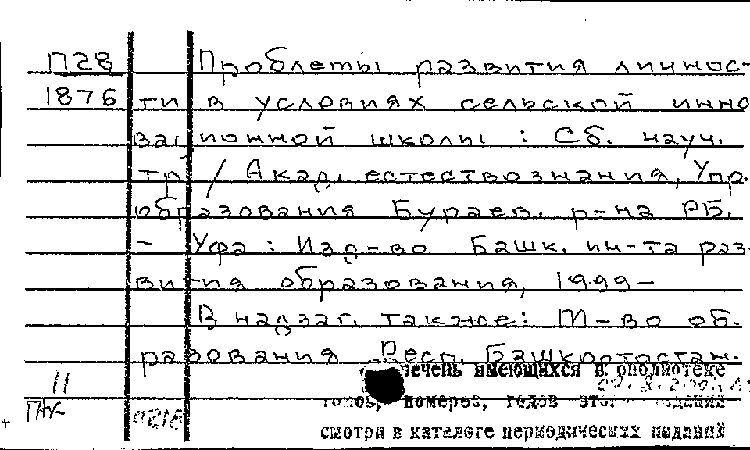 П28 Проблемы развития личнос-
1876 ти в условиях сельской инно
вационной школы : Сб. науч.
тр. / Акад. естествознания, Упр.
образования Бураев. р-на РБ.
- Уфа : Изд-во Башк. ин-та раз-
вития образования, 1999-
В надзаг. также: М-во об.
разования Респ. Башкортостан.
11 перечень имеющихся в библиотеке
томов, номеров, годов этого издания
смотри в каталоге периодических изданий